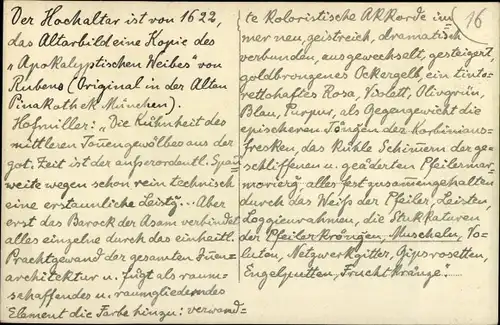 Der Hochaltar ist von 1622,
das Altarbild eine Kopie des
„Apokalyptischen Weibes" von
Rubens (Original in der Alten
Pinakothek München).
Hofmiller: „Die Kühnheit des
mittleren Tonnengewölbes aus der
got. Zeit ist der außerordentl. Spann
weite wegen schon rein technisch
eine erstaunliche Leistg... Aber
erst das Barock der Asam verbindet
alles einzelne durch das einheitl.
Prachtgewand der gesamten Innen=
architektur u. fügt als raum=
schaffendes u. raumgliederndes
Element die Farbe hinzu: verwand=
16
te koloristische Akkorde im=
mer neu, geistreich, dramatisch
verbunden, ausgewechselt, gesteigert,
goldbronzenes Ockergelb, ein tinto=
rettohaftes Rosa, Violett, Olivgrün,
Blau, Purpur, als Gegengewicht die
epischeren Tönungen der Korbinians=
fresken, das kühle Schimmern der ge=
schliffenen u. geäderten Pfeilermar=
morierg, alles fest zusammengehalten
durch das Weiß der Pfeiler, Leisten,
Loggienrahmen, die Stukkaturen
der Pfeilerkrönungen, Muscheln, Vo=
luten, Netzwerkgitter, Gipsrosetten,
Engelputten, Fruchtkränze."......